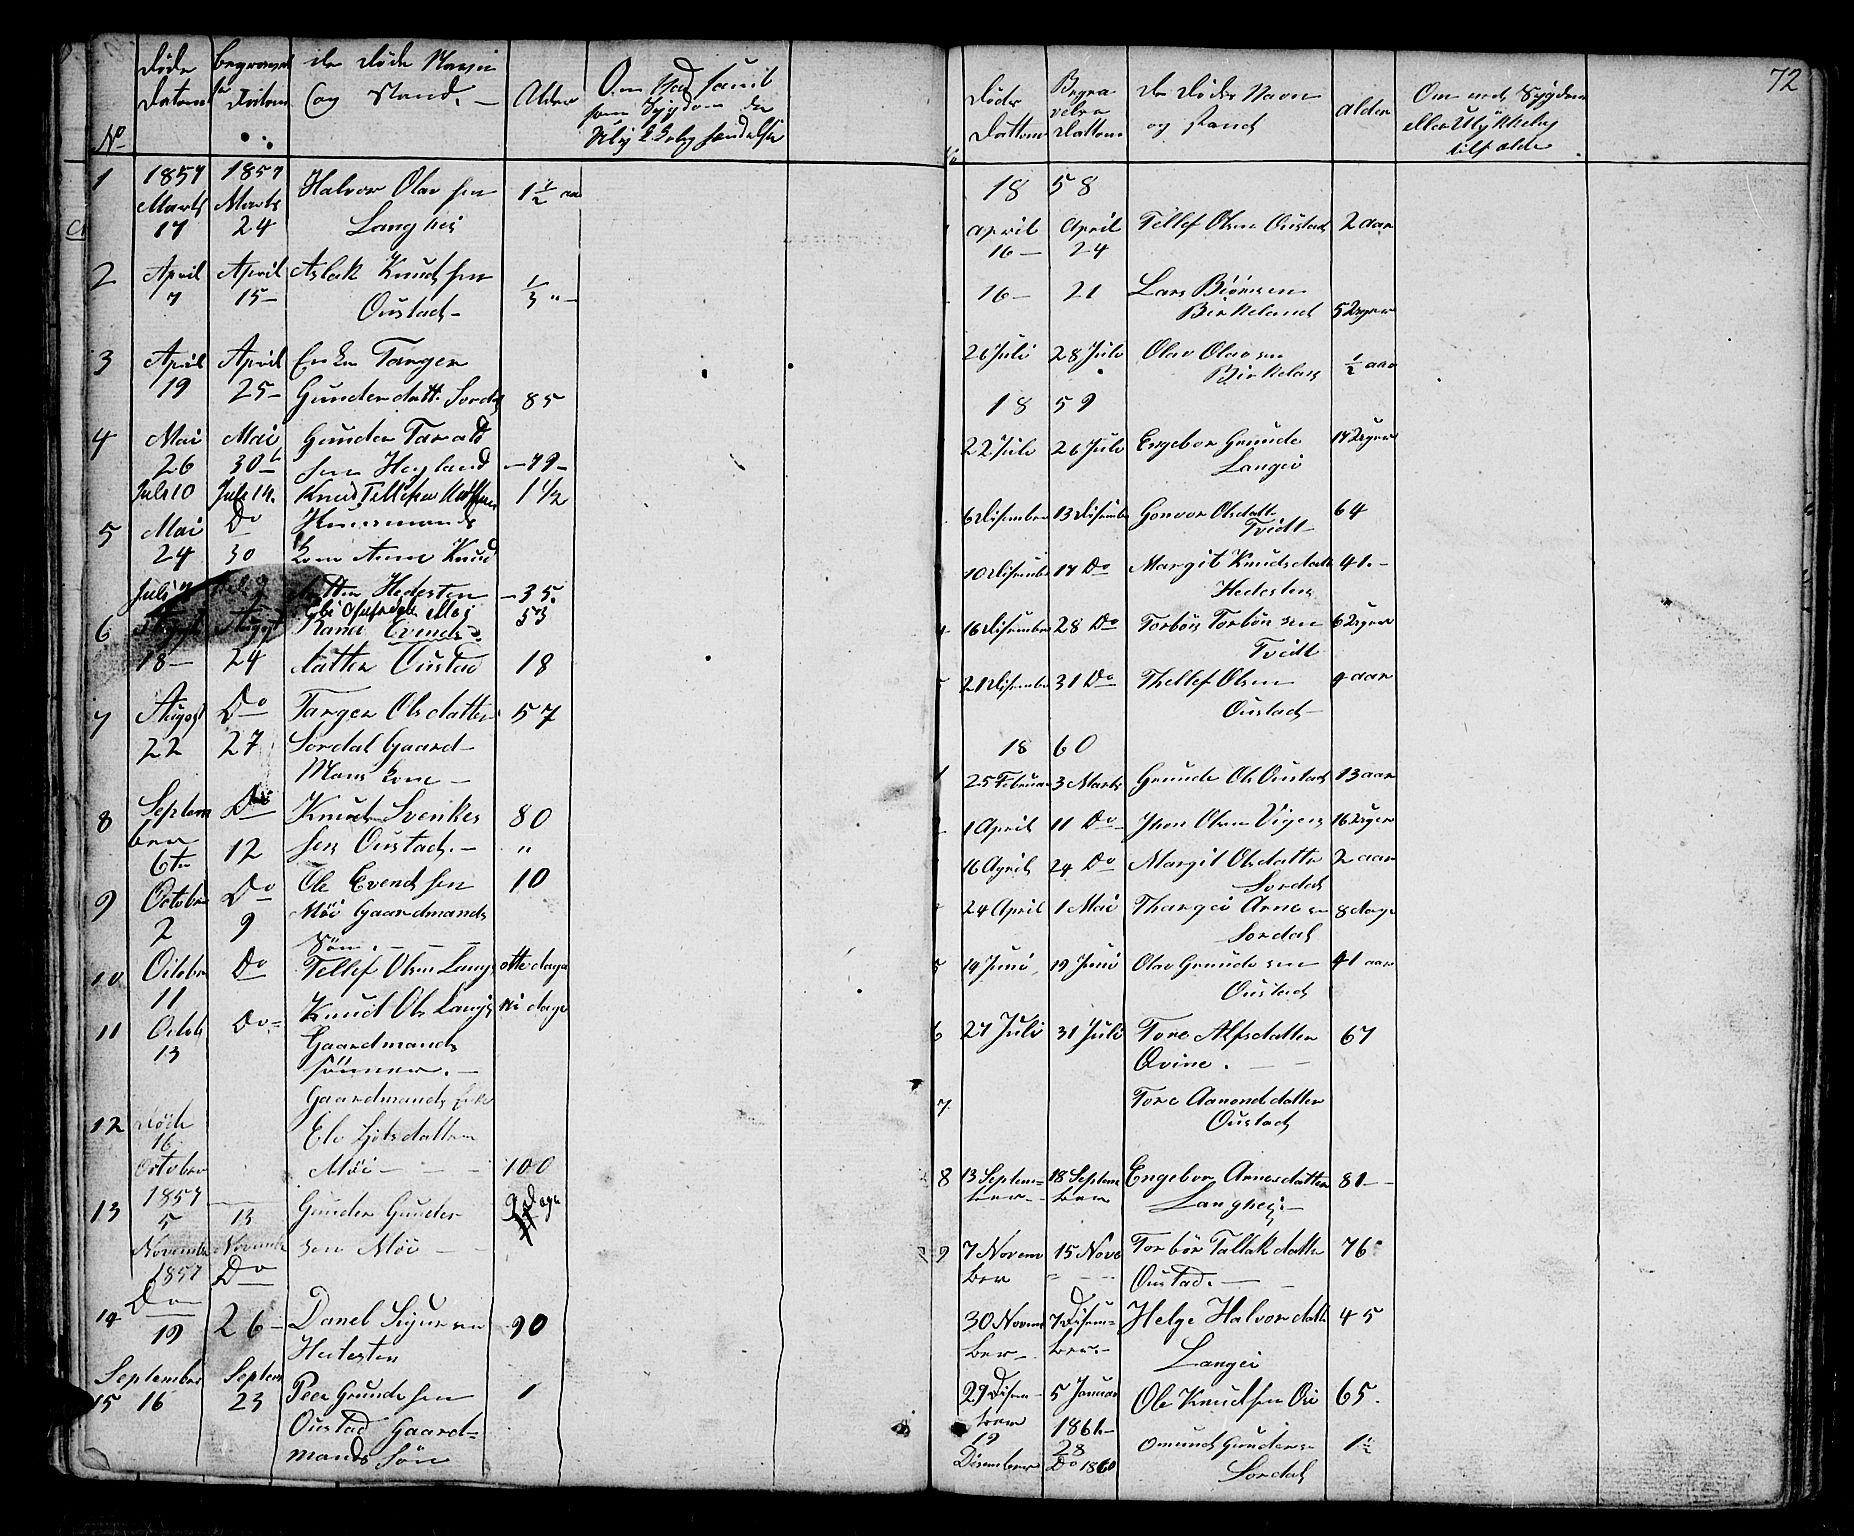 Døde
Datum
Begravels
Datum
de Døde Navn
og Stand. —
Alder
No
1
1857
Marts
17
1857
Marts
24
Halvor Olavsen
Langhei
1 1/2 aa
2
April
7
April
15 —
Aslak Knudsen
Oustad —
1/3 " —
3
April
19
April
25 —
Enken Targer
Gunderdatt. Sordal
85
4
Mai
26
Mai
30 —
Gunder Tarald
sen Heyland
— 79 —
Juli 10
Juli 14.
Knud Tellefsen
1 1/2
5
Mai
24
Do
30
Huusmands
Kone Anne Knud
datter Hedesten
— 35.
Juli
53
6
August
18 —
August
24
Ranei Evends
datter Oustad
18
7
August
22
Do
27
Targer Olsdatter
Sordal Gaard
Mans Kone —
57
8
Septem
ber
6te
Do
12
Knud Svenkes
sen Oustad. —
80
"
9
October
2
Do
9
Ole Evendsen
Møi Gaardmands
Søn. — — —
10
10
October
11
Do
Tellef Olsen Langei
otte dage
11
Octob
13
Do =
Knud Ols Langei
Gaardmands
sønner. —
ni dage
12
Døde
16
October
1857
Gaardmands
Elv Ljotsdatter
Møi — — —
100
13
5
November
1857
13
November
Do
Gunder Gunder
sen Møi — —
9 Dage
14
Do
19
26 —
Danel Sigursen
Hedesten
90
15
September
16
Septem
23
Peer Grundesen
Oustad Gaard=
mands Søn
1
72
Døde
Dattum
Begra
velse
Dattum
De Dødes Navn
og stand
alder
Om ved Sygdom
eller Ulykkelig
tilfælde
18 58
April
16 —
April
24
Tellef Olsen Oustad
2 aar
16 —
21
Lars Biørnsen
Birkeland
5 Uger
26 Juli
28 Juli
Olav Olavsen
Birkeland
1/2 aar
18 59
22 Juli
26 Juli
Engebor Grunde
Langei
17 Uger
6 Disember
13 Disember
Gonvor Olsdatt
Tvidt
64
10 Disember
17 Do
Margit Knudsdatt
Hedesten
41. —
16 Disember
28 Do
Torbør Torbørsen
Tvidt
6 Uger
21 Disember
31 Do
Thellef Olsen
Oustad
9 aar
18 60
1
25 Februar
3 Marts
Grunde Ols Oustad
13 aar
1 April
11 Do
Jhon Olsen Vigen
16 Uger
16 April
24 Do
Margit Olsdatter
Sordal
2 aar
24 April
1 Mai
Thargei Arnesen
Sordal
8 dage
5
14 Juni
19 Juni
Olav Grundesen
Oustad
41 aar
6
27 Juli
31 Juli
Tore Alfsdatter
Øvine. — —
67
7
Tore Aanonddatter
Oustad
8
13 Septem=
ber —
18 Septem
ber
Engebor Arnesdatter
Langhei —
81 —
9
7 Novem
ber
15 Nove
Torbør Tallakdatter
Oustad. — —
76
30 Novem
ber —
7 Disem=
ber. —
Helge Halvordatter
Langei
45
29 Disem
ber
5 Januar
1861 —
Ole Knudsen
65.
19
Disember
28
Do 1860
Omund Gunderse
Sordal
1 1/2